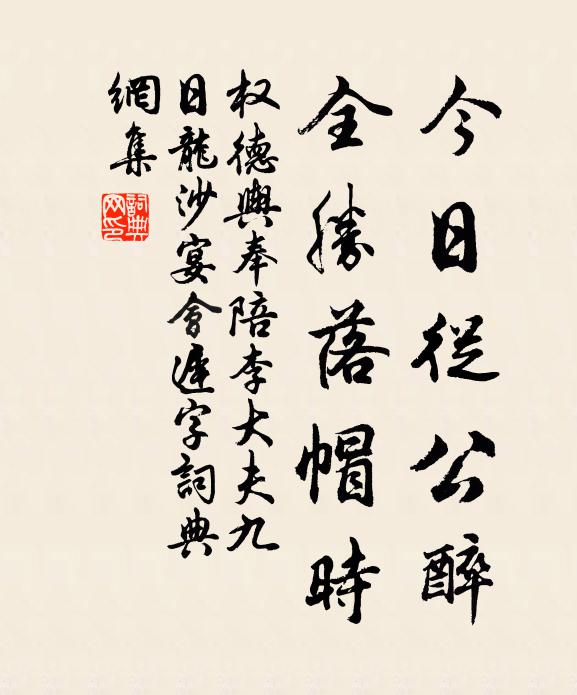 今日從公醉
全勝落帽時
权德輿奉陪李大夫九
日龍沙宴會遲字詞典
網集
詞典网印